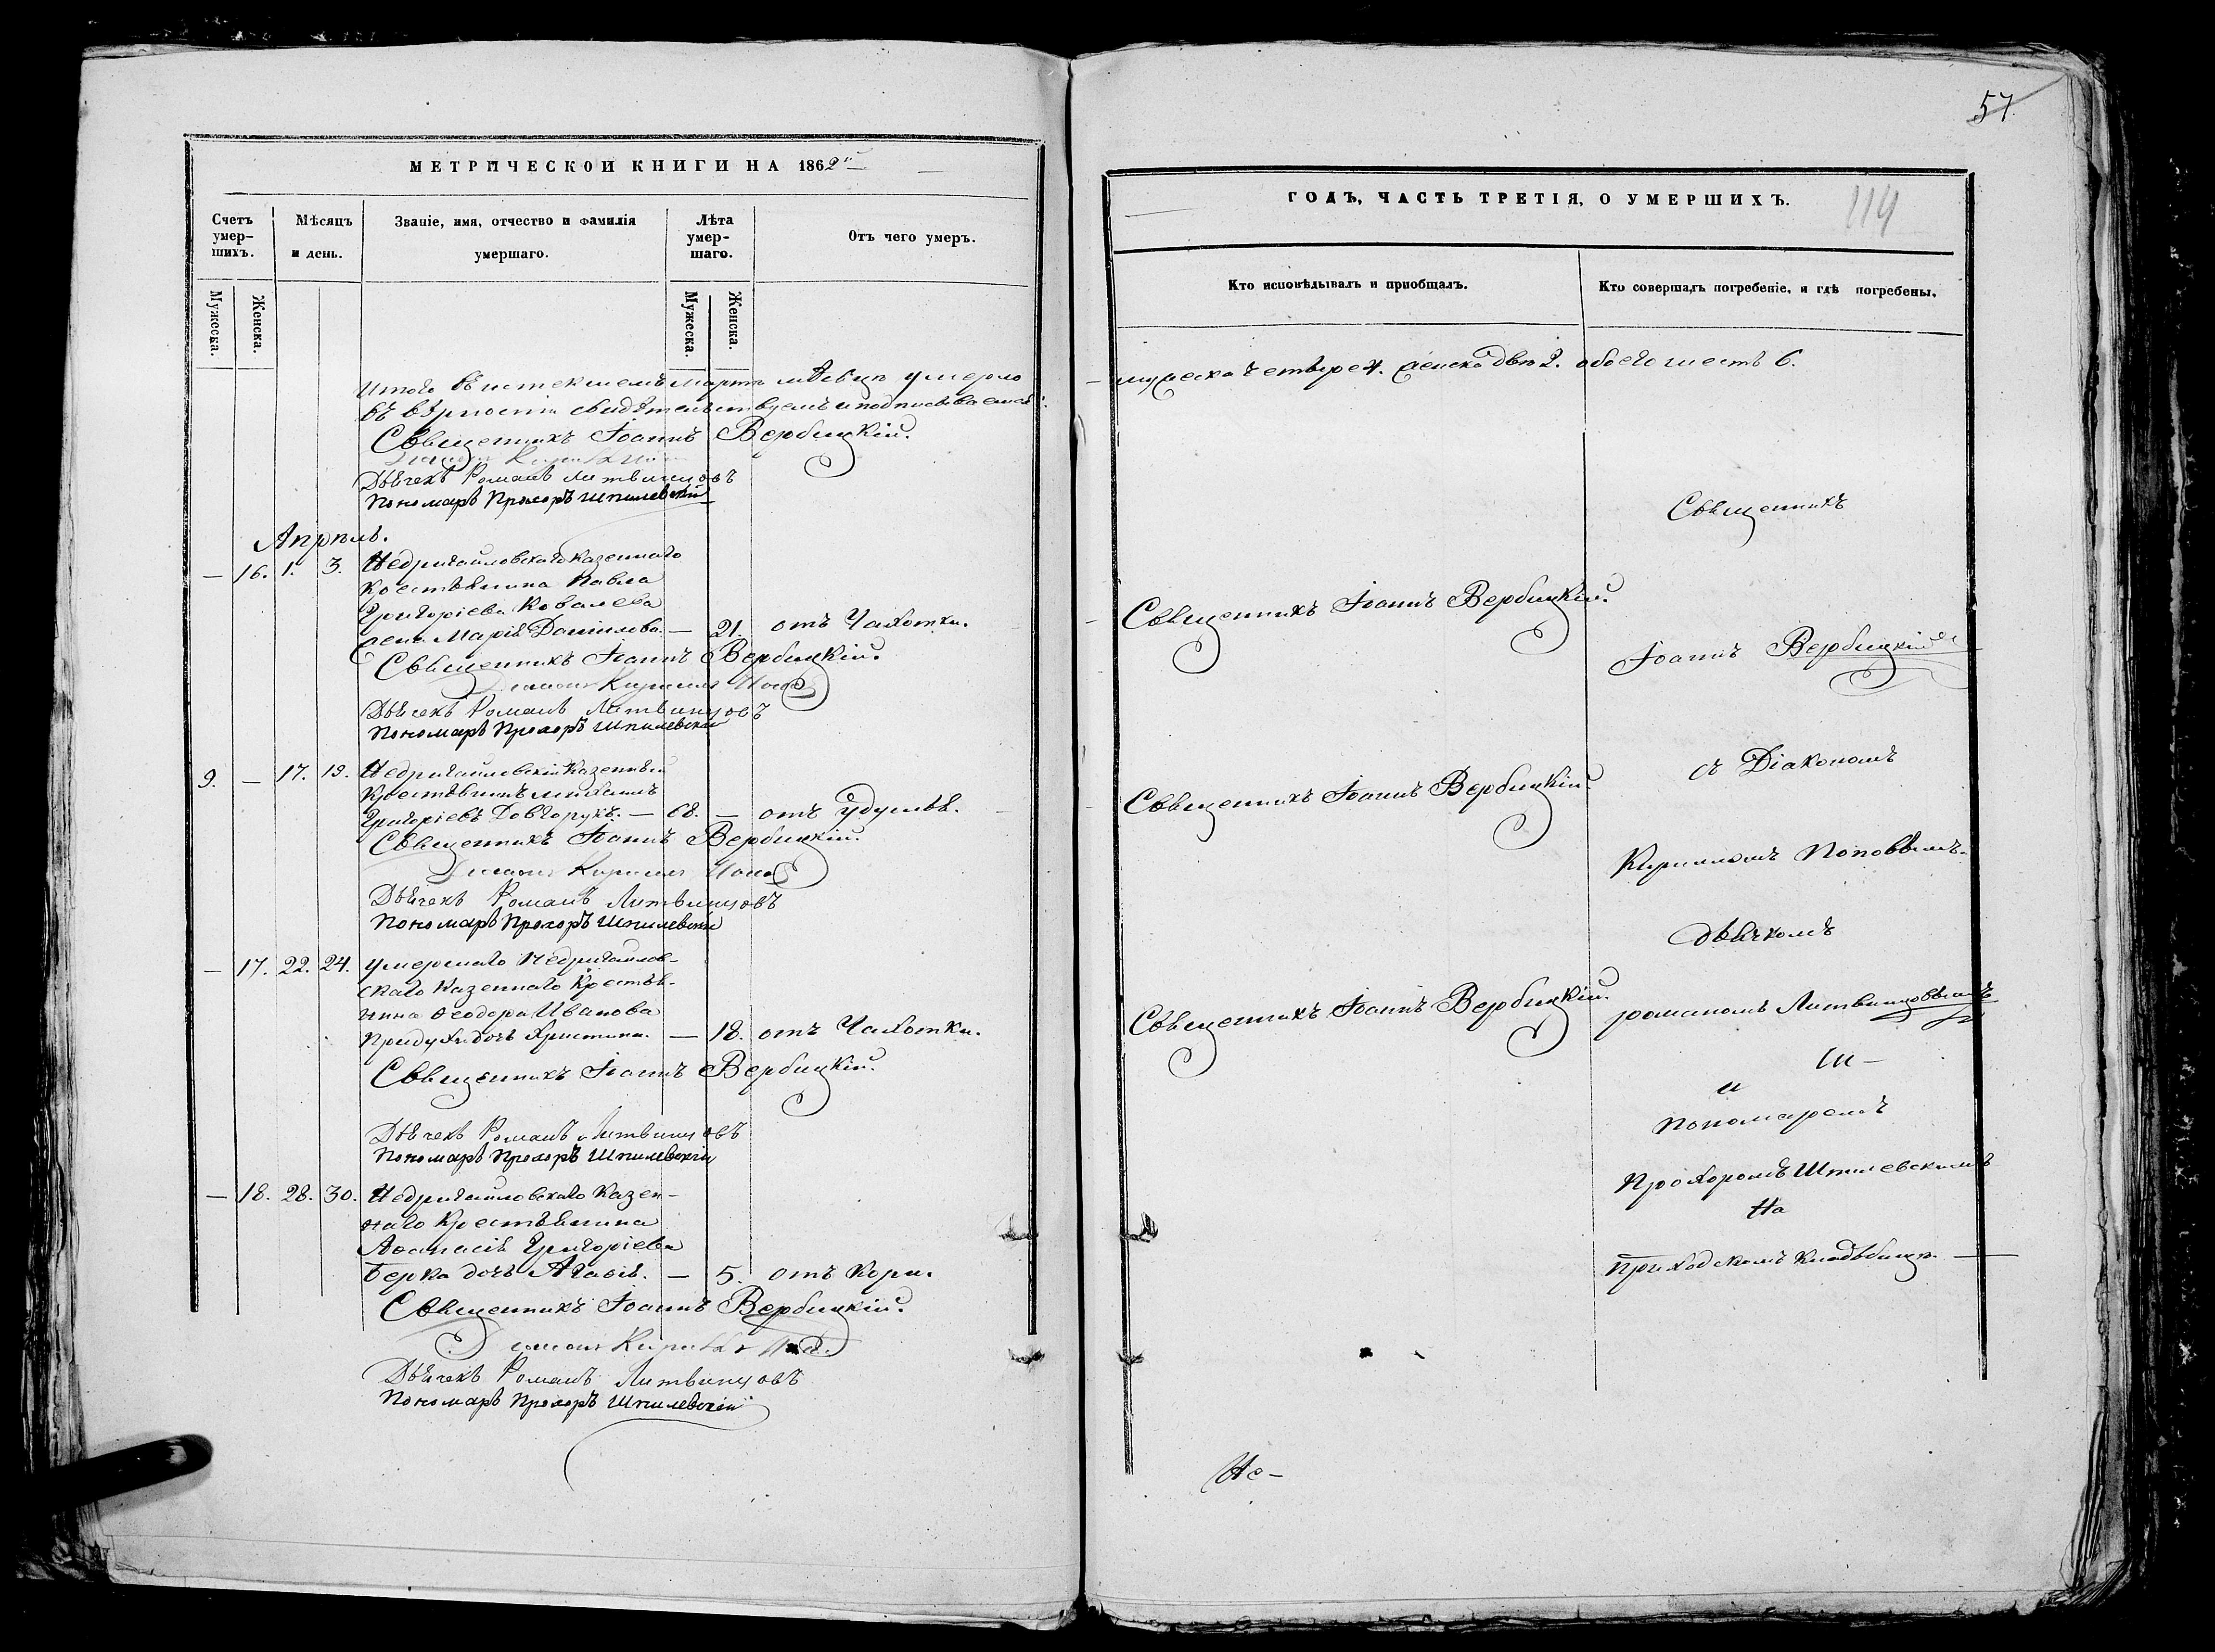 57
МЕТРИЧЕСКОЙ КНИГИ НА 1862й
Счетъ умер-шихъ.
Мѣсяцъ и день.
Званіе, имя, отчество и фамилія умершаго.
Лѣта умер-шаго.
Отъ чего умеръ.
Мужеска.
Женска.
Мужеска.
Женска.
Итого въ истекшемъ мартѣ мѣсяцѣ умерло
въ вѣрности свидѣтельствуемъ и подписываемся:
Священникъ Іоаннъ Вербицкій.
Дьячекъ Романъ Литвинцовъ
Пономарь Прохоръ Шпилевскій
Апрѣль.
— 16. 1. 3. Недригайловскаго казеннаго
крестьянина Павла
Григоріева Ковалева
жена Марія Данилова. — 21. отъ Чахотки.
Священникъ Іоаннъ Вербицкій.
Діаконъ Кириллъ
Дьячекъ Романъ Литвинцовъ
Пономарь Прохоръ Шпилевскій
9. — 17. 19. Недригайловскій Казенный
Крестьянинъ Михаилъ
Григоріевъ Довгорукъ. — 68. — отъ Удушья.
Священникъ Іоаннъ Вербицкій.
Діаконъ Кириллъ
Дьячекъ Романъ Литвинцовъ
Пономарь Прохоръ Шпилевскій
— 17. 22. 24. умершаго Недригайлов-
скаго Казеннаго Крестья-
нина Ѳеодора Иванова
дочь Христина. — 18. отъ Чахотки.
Священникъ Іоаннъ Вербицкій.
Дьячекъ Романъ Литвинцовъ
Пономарь Прохоръ Шпилевскій
— 18. 28. 30. Недригайловскаго Казен-
наго Крестьянина
Аѳанасія Григоріева
Берка дочь Агавія. — 5. отъ Кори.
Священникъ Іоаннъ Вербицкій.
Діаконъ Кириллъ
Дьячекъ Романъ Литвинцовъ
Пономарь Прохоръ Шпилевскій
ГОДЪ, ЧАСТЬ ТРЕТІЯ, О УМЕРШИХЪ.
114
Кто исповѣдывалъ и пріобщалъ.
Кто совершалъ погребеніе, и гдѣ погребены.
мужеска четыре 4. женска двѣ 2. обоего шесть 6.
Священникъ
Священникъ Іоаннъ Вербицкій.
Іоаннъ Вербицкій
съ Діакономъ
Священникъ Іоаннъ Вербицкій.
Кирилломъ Поповымъ.
дьячкомъ
Священникъ Іоаннъ Вербицкій.
романомъ Литвинцовымъ
и
Пономаремъ
Прохоромъ Шпилевскимъ
На
Приходскомъ кладбищѣ. —
Ис-